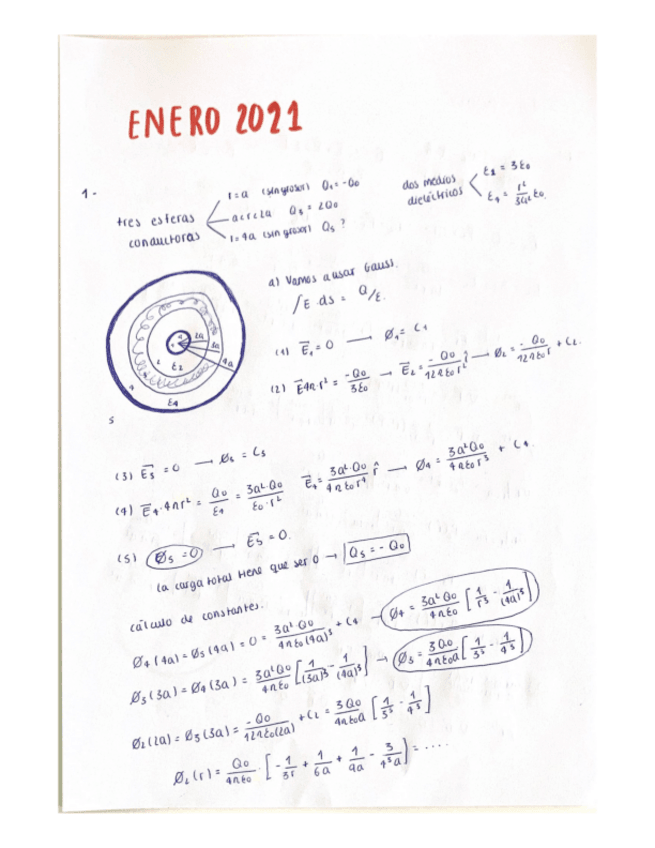 ENERO 2021
1.-
tres esferas conductoras
r=a (sin grosor) Q₁=-Q₀
a<r<2a Q₃=2Q₀
r=4a (sin grosor) Q₅?
dos medios dieléctricos
ε₂=3ε₀
ε₄=r²/3a² ε₀.
a) Vamos a usar Gauss.
∫E·ds = Q/ε.
2a
3a
4a
ε₂
ε₄
5
(1) E₁=0 → Ø₁=C₁
(2) E4πr² = -Q₀/3ε₀ → E₂=-Q₀/12πε₀r² r̂ → Ø₂=-Q₀/12πε₀r + C₂.
(3) E₃=0 → Ø₃=C₃
(4) E₄·4πr² = Q₀/ε₄ = 3a²·Q₀/ε₀·r² E₄=3a²·Q₀/4πε₀r⁴ r̂ → Ø₄=3a²Q₀/4πε₀r³ + C₄.
(5) Ø₅=0 → E₅=0.
la carga total tiene que ser 0 → Q₅=-Q₀
cálculo de constantes.
Ø₄(4a)=Ø₅(4a)=0=3a²·Q₀/4πε₀(4a)³+C₄ → Ø₄=3a²Q₀/4πε₀ [1/r³ - 1/(4a)³]
Ø₃(3a)=Ø₄(3a)=3a²Q₀/4πε₀ [1/(3a)³ - 1/(4a)³] → Ø₃=3Q₀/4πε₀a [1/3³ - 1/4³]
Ø₂(2a)=Ø₃(3a)=-Q₀/12πε₀(2a)+C₂=3Q₀/4πε₀a [1/3³ - 1/4³]
Ø₂(r)=Q₀/4πε₀ · [-1/3r + 1/6a + 1/9a - 3/4³a] = ....